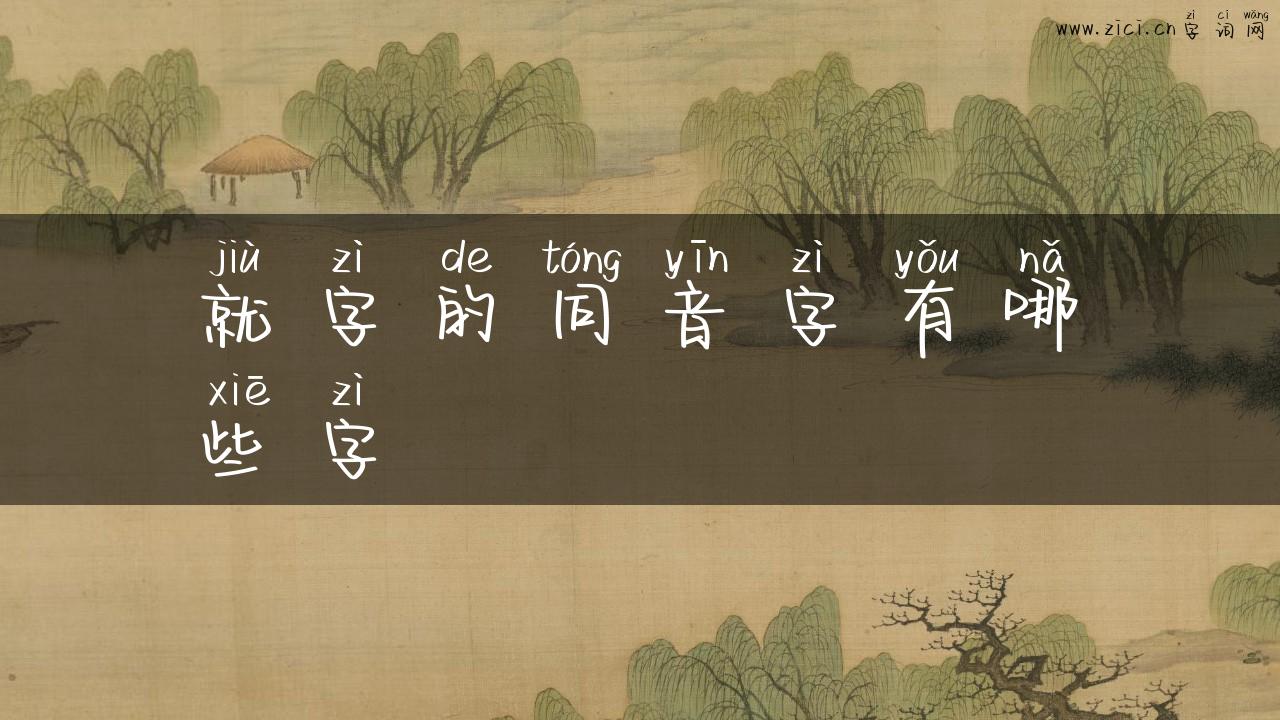 zì cí wǎng
www.zici.cn 字词网
jiù zì de tóng yīn zì yǒu nǎ
就字的同音字有哪
xiē zì
些字